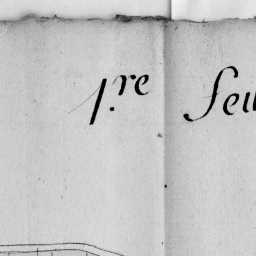 1.re Feu